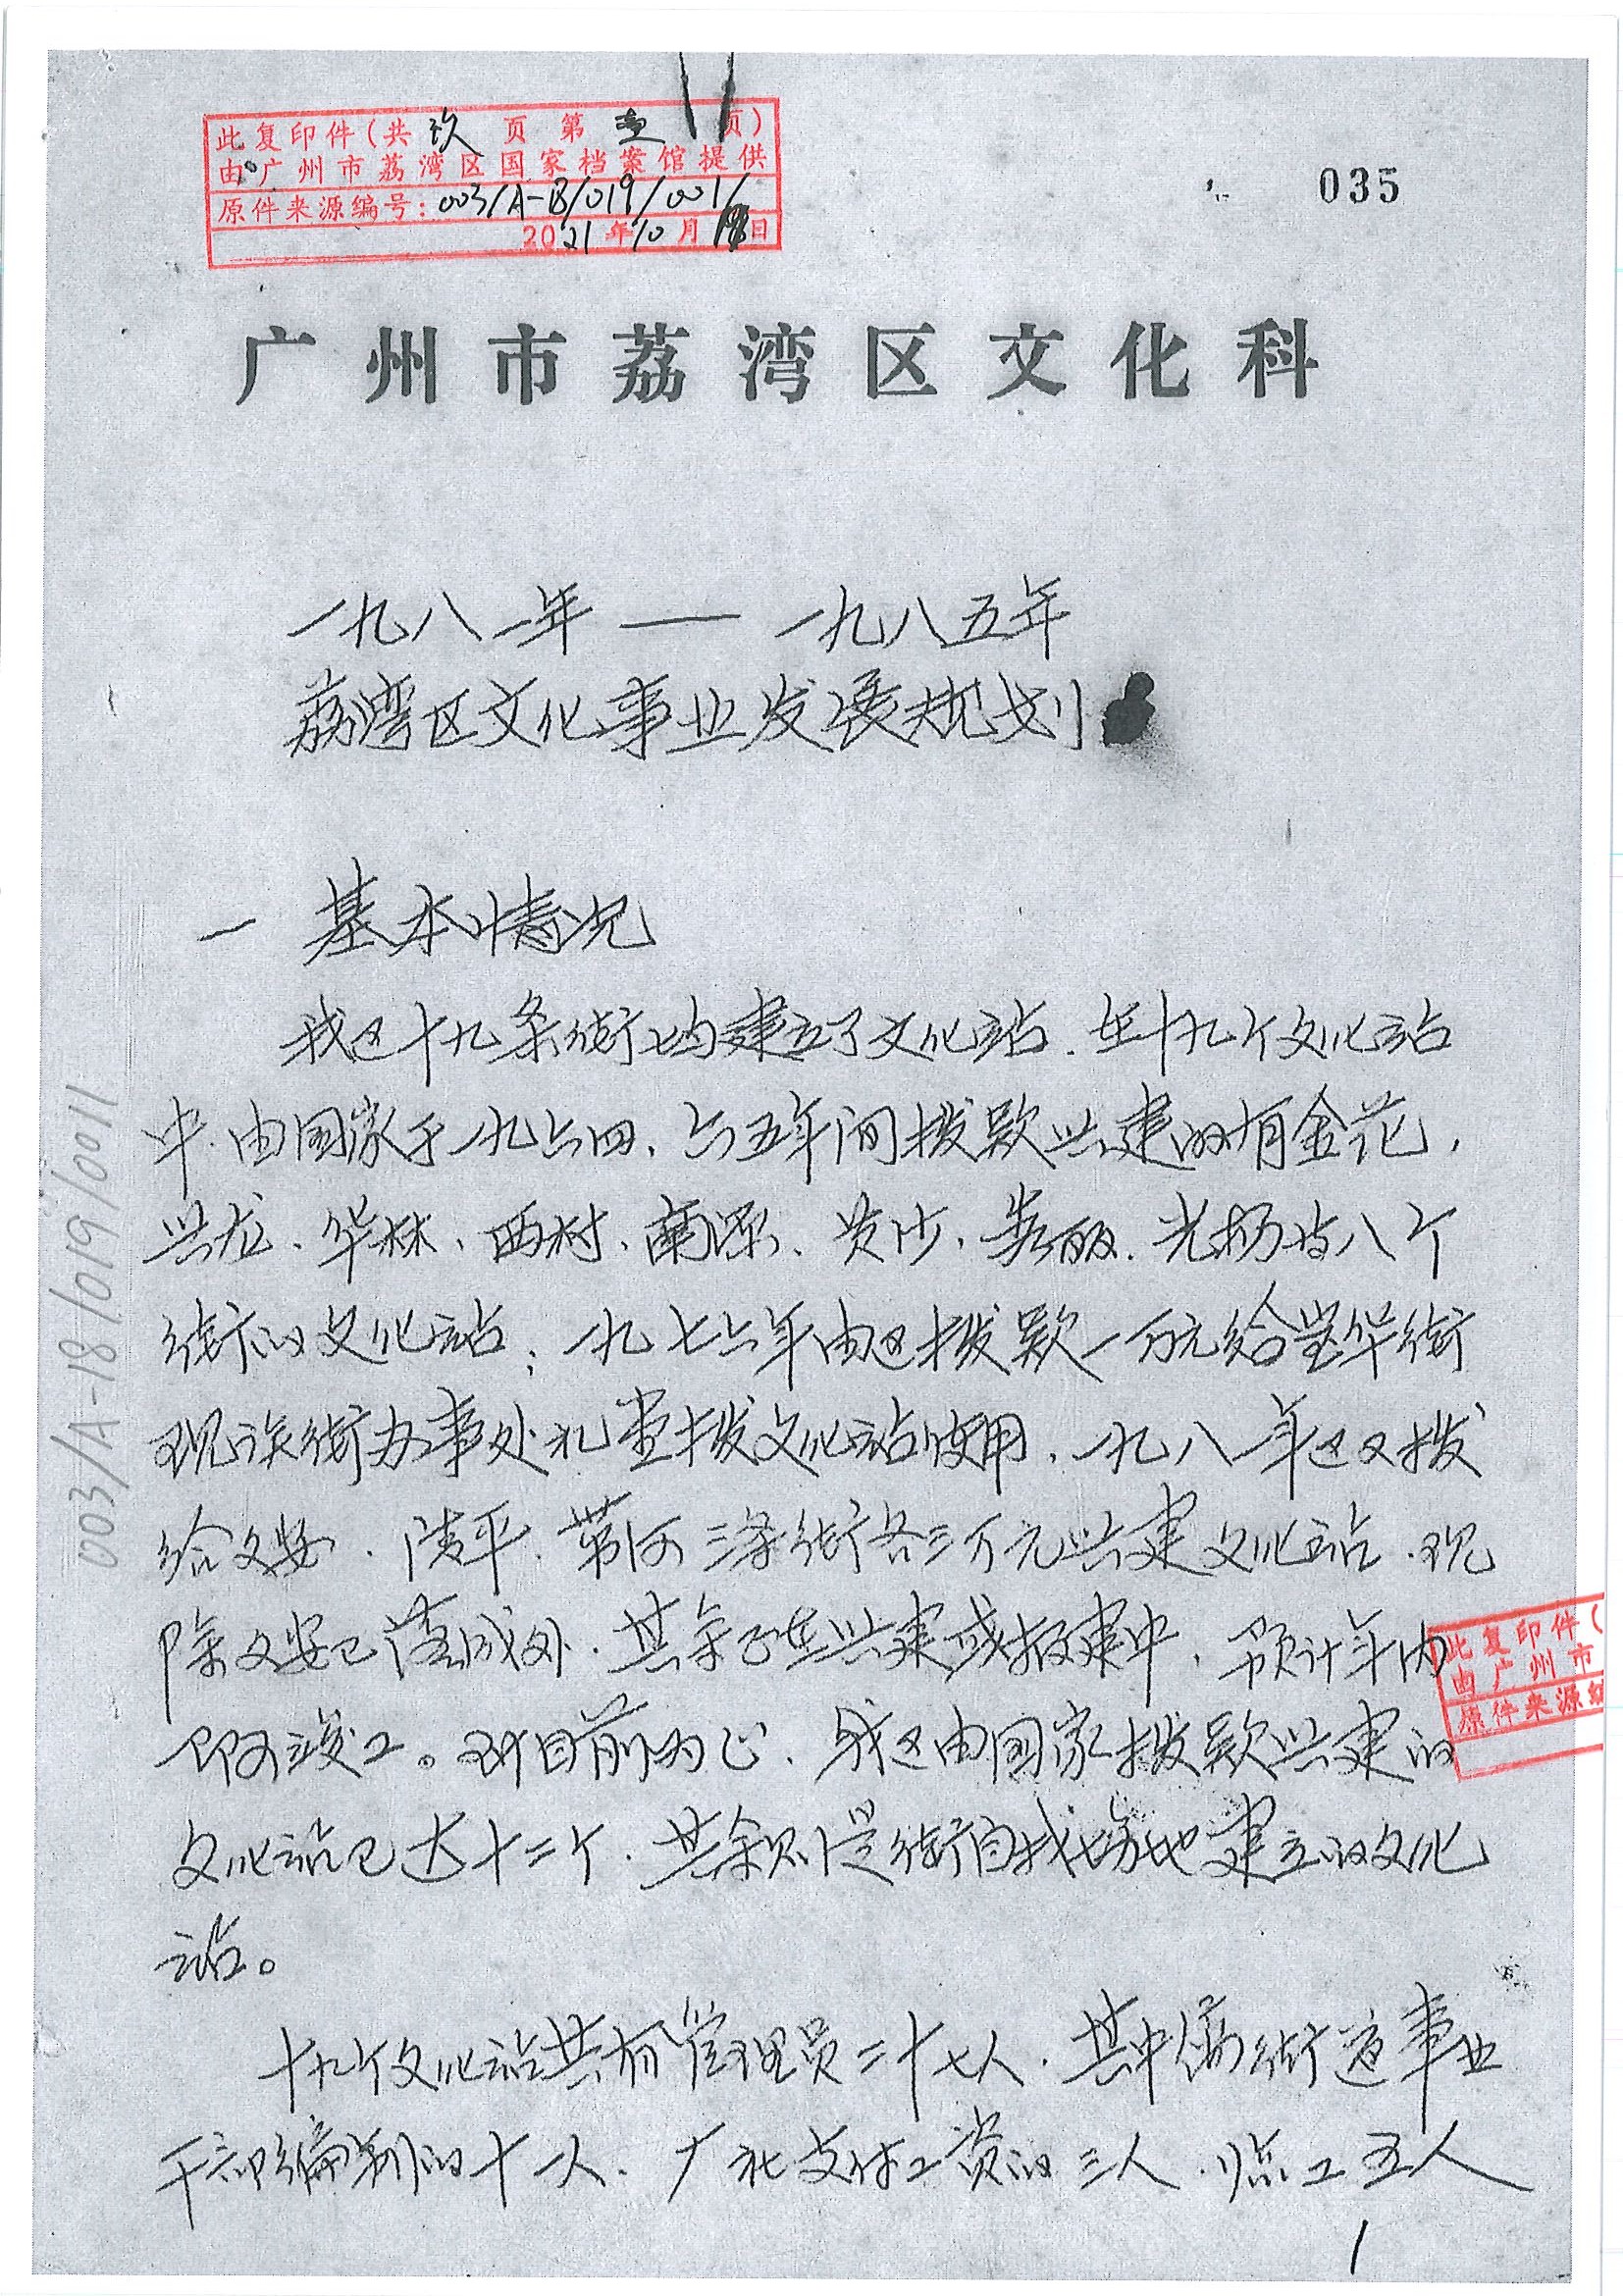 此复印件(共玖页第壹页)
由广州市荔湾区国家档案馆提供
原件来源编号:003/A-18/019/001/
2021年10月18日
035
广州市荔湾区文化科
一九八一年——一九八五年
荔湾区文化事业发展规划
一 基本情况
我区十九条街均建立了文化站.在十九个文化站
中.由国家于一九六四、六五年间拨款兴建的有金花,
兴龙、华林、西村、南源、黄沙、秀丽、光扬等八个
街的文化站;一九七六年由区拨款一万元给宝华街
现该街办事处礼堂拨文化站使用.一九八一年区又拨
给文安、清平、蓬河三条街各三万元兴建文化站.现
除文安已落成外.其余正在兴建或报建中.预计年内
即可竣工。到目前为止、我区由国家拨款兴建的
文化站已达十二个.其余则是街自找场地建立的文化
站。
十九个文化站共有管理员二十七人.其中属街道事业
干部编制的十一人、厂社支付工资的三人.临工五人
1
003/A-18/019/0011
此复印件(
由广州市
原件来源编